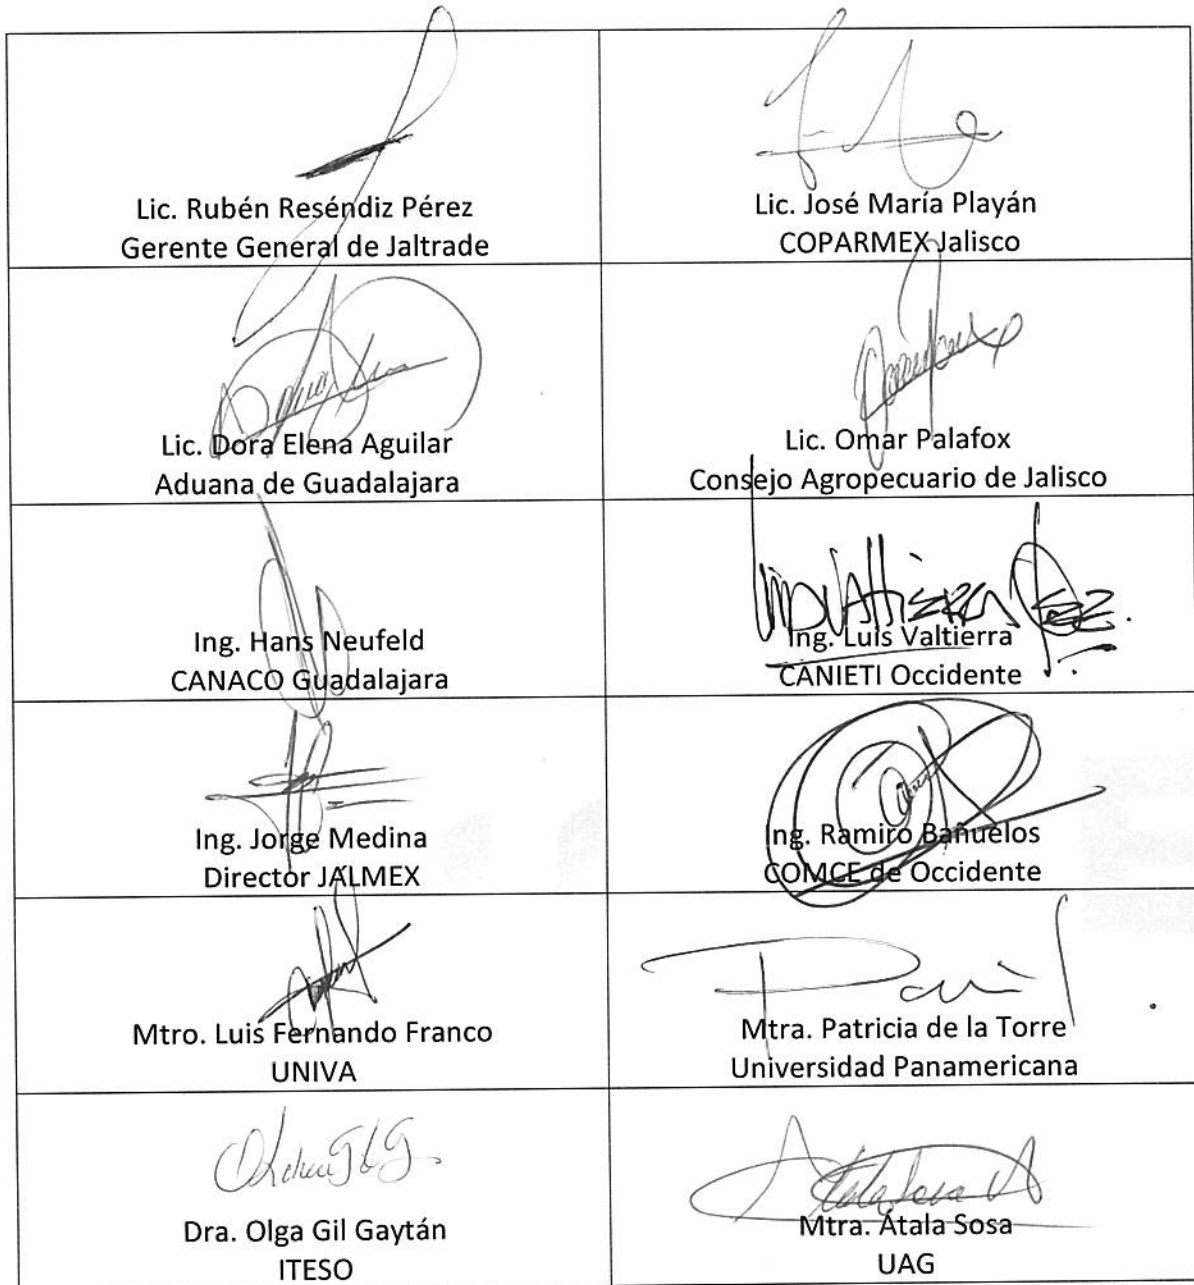 Lic. Rubén Reséndiz Pérez
Gerente General de Jaltrade
Lic. José María Playán
COPARMEX Jalisco
Lic. Dora Elena Aguilar
Aduana de Guadalajara
Lic. Omar Palafox
Consejo Agropecuario de Jalisco
Ing. Hans Neufeld
CANACO Guadalajara
Ing. Luis Valtierra
CANIETI Occidente
Ing. Jorge Medina
Director JALMEX
Ing. Ramiro Bañuelos
COMCE de Occidente
Mtro. Luis Fernando Franco
UNIVA
Mtra. Patricia de la Torre
Universidad Panamericana
Dra. Olga Gil Gaytán
ITESO
Mtra. Átala Sosa
UAG